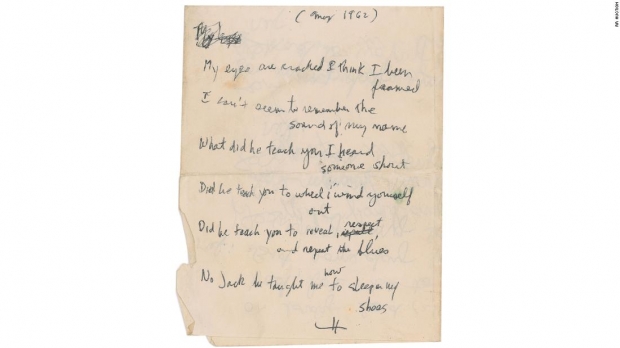 (May 1962)
My eyes are cracked I think I been
framed
I can't seem to remember the
sound of my name
What did he teach you I heard
someone shout
Did he teach you to wheel & wind yourself
out
Did he teach you to reveal, respect,
and repeat the blues
No Jack he taught me how to sleep in my
shoes